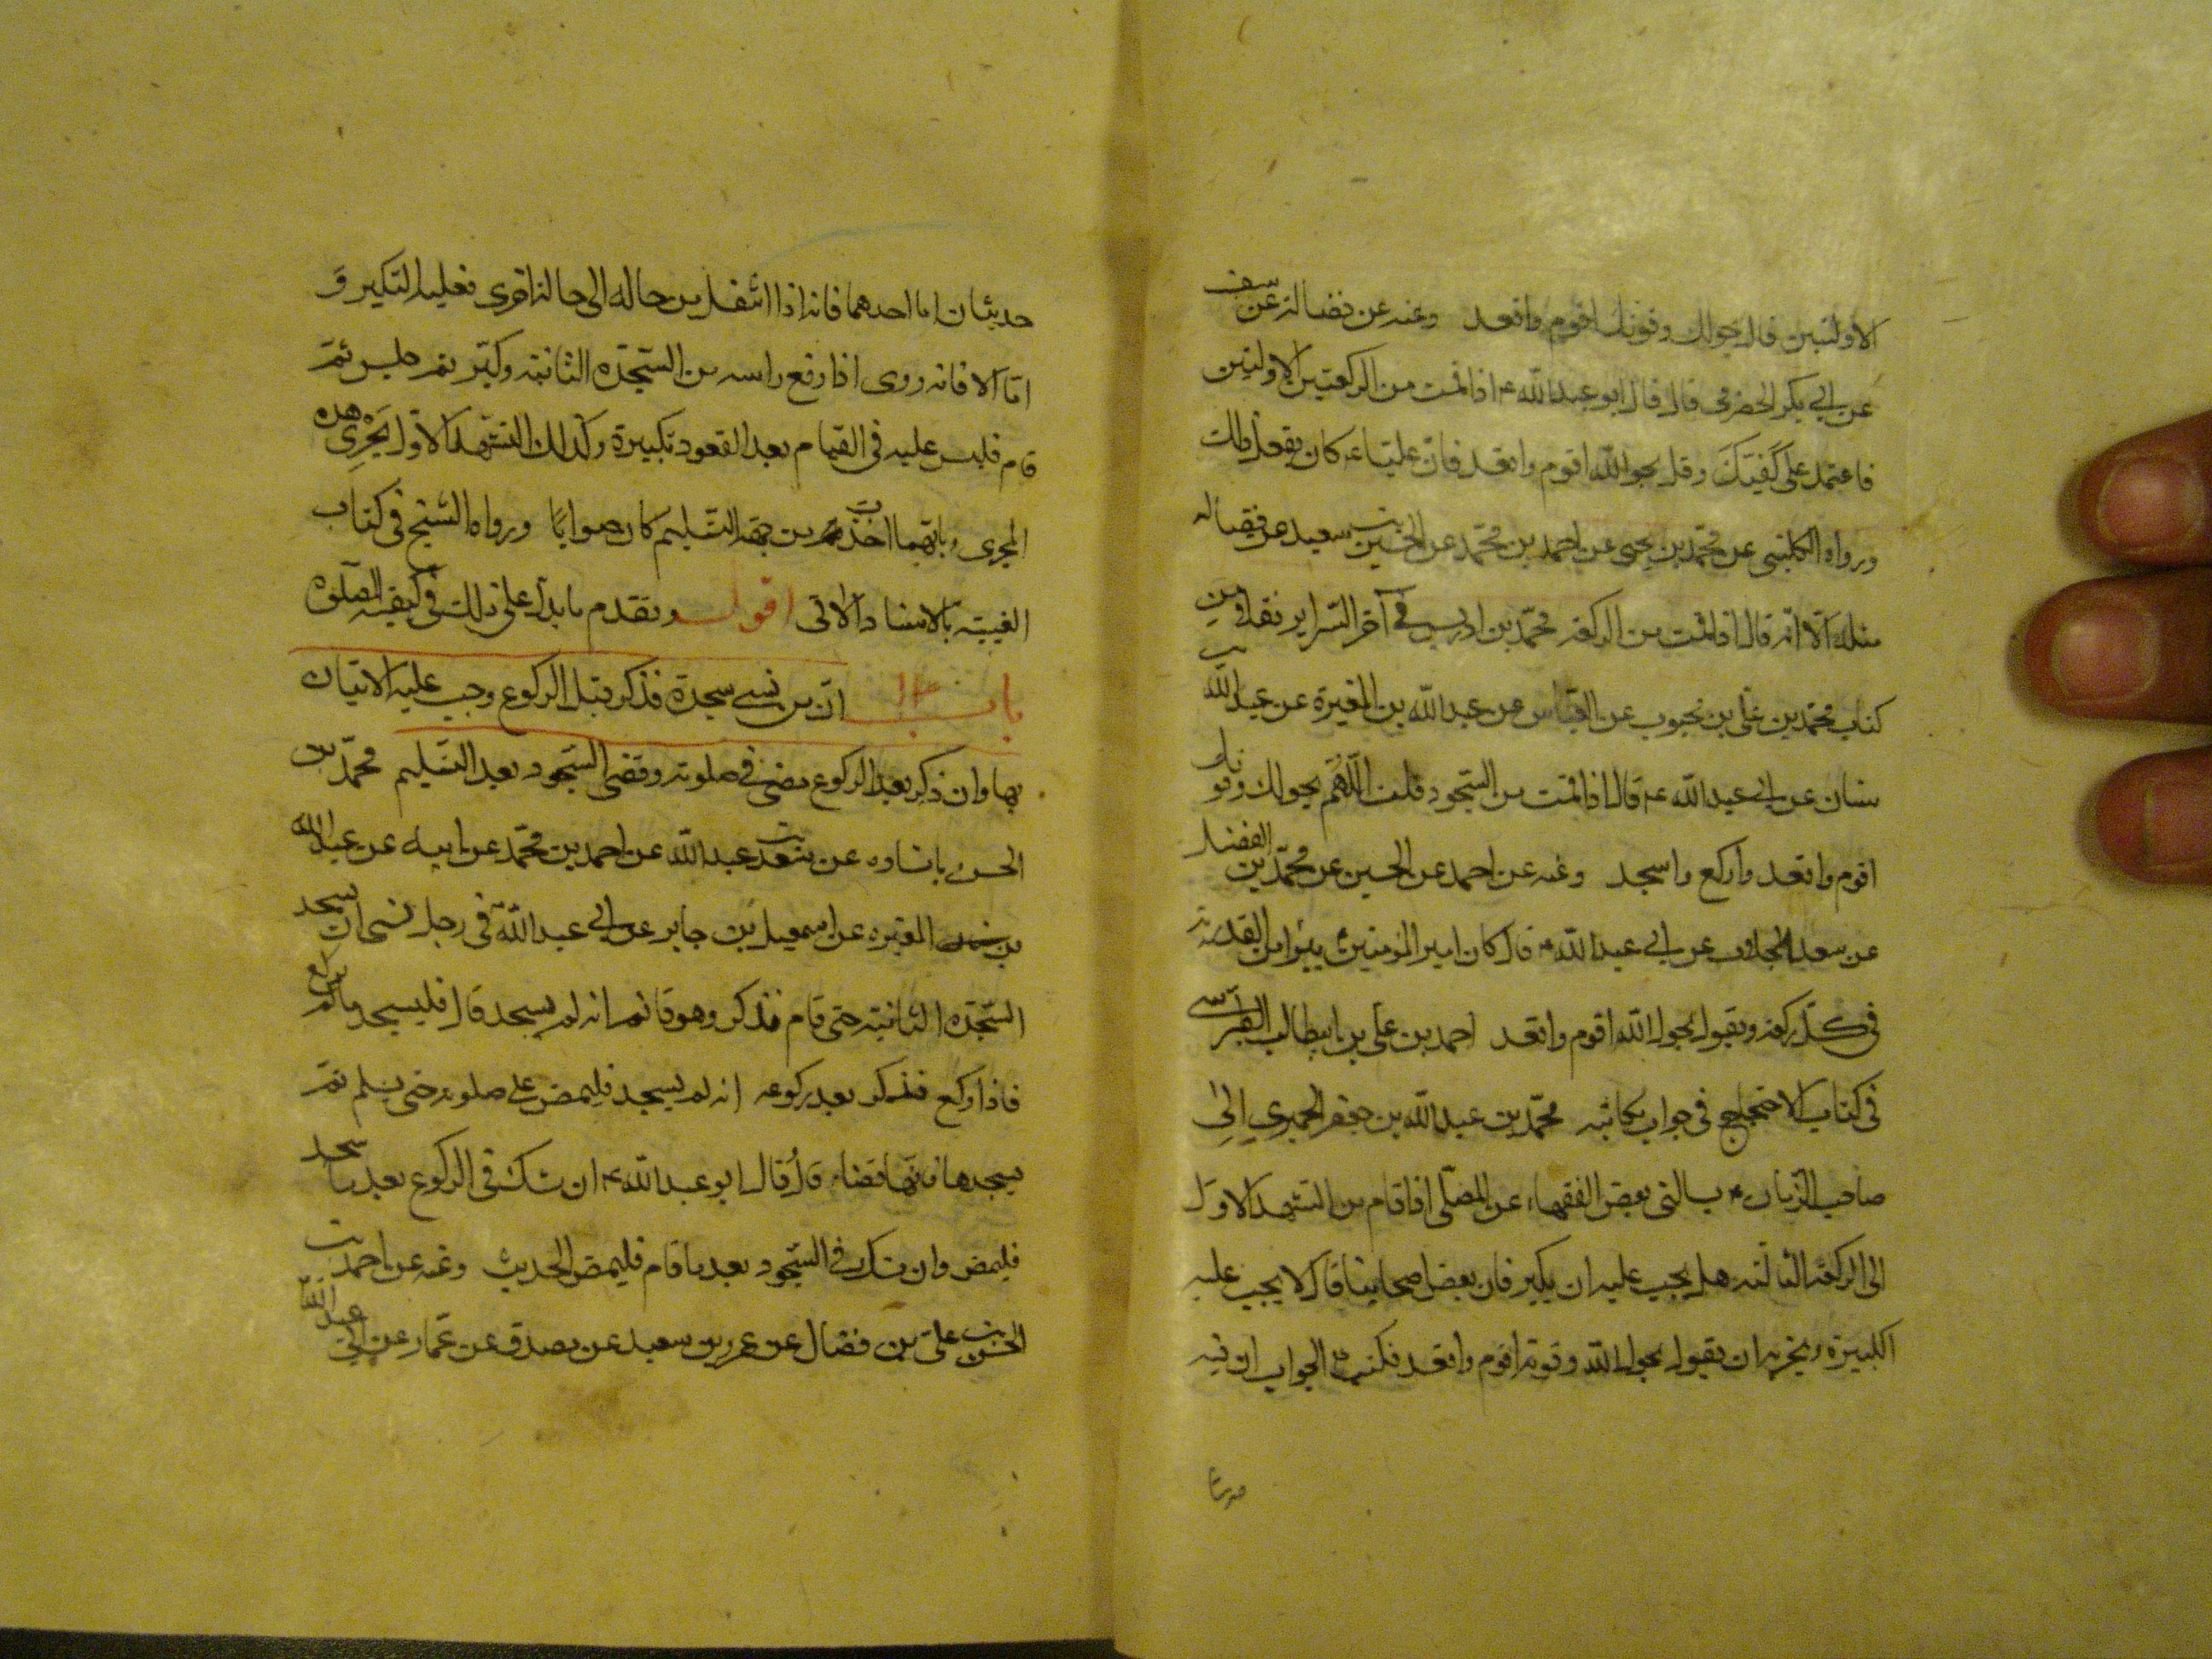 الاولتين فقل بحولك وقوتك اقوم واقعد وعنه عن فضالة عن سيف
عن ابي بكر الحضرمي قال قال ابو عبد الله ع اذا قمت من الركعتين الاولتين
فاعتمد على كفيك وقل بحول الله اقوم واقعد فان عليا ع كان يفعل ذلك
ورواه الكليني عن محمد بن يحيى عن احمد بن محمد عن الحسين بن سعيد عن فضاله
مثله الا انه قال اذا قمت من الركعة محمد بن ادريس في آخر السراير نقلا من
كتاب محمد بن علي بن محبوب عن العباس عن عبد الله بن المغيرة عن عبد الله بن
سنان عن ابي عبد الله ع قال اذا قمت من السجود قلت اللهم بحولك وقوتك
اقوم واقعد واركع واسجد وعنه عن احمد عن الحسين عن محمد بن الفضيل
عن سعد الجلاب عن ابي عبد الله ع قال كان امير المومنين ع يبرأ من القدرية
في كل ركعة ويقول بحول الله اقوم واقعد احمد بن علي بن ابيطالب الطبرسي
في كتاب الاحتجاج في جواب مكاتبه محمد بن عبد الله بن جعفر الحميري الى
صاحب الزمان ع يسالني بعض الفقهاء عن المصلي اذا قام من التشهد الاول
الى الركعة الثالثة هل يجب عليه ان يكبر فان بعض اصحابنا قال لا يجب عليه
التكبيرة ويجزيه ان يقول بحول الله وقوته اقوم واقعد فكتب ع الجواب ان فيه
حديثان اما احدهما فانه اذا انتقل من حاله الى حالة اخرى فعليه التكبير و
اما الا فانه روى اذا رفع راسه من السجده الثانية وكبر ثم جلس ثم
قام فليس عليه في القيام بعد القعود تكبيرة وكذلك التشهد الاول يجري هذه
المجرى وبايهما اخذت من جهة التسليم كان صوابا ورواه الشيخ في كتاب
الغيبة بالاسناد الاتي اقول وتقدم ما يدل على ذلك في كيفية الصلوة
باب ١٤ ان من نسي سجدة فذكر قبل الركوع وجب عليه الاتيان
بها وان ذكر بعد الركوع مضى في صلوته وقضى السجود بعد التسليم محمد بن
الحسن باسناده عن سعد بن عبد الله عن احمد بن محمد عن ابيه عن عبد الله
بن المغيره عن اسمعيل بن جابر عن ابي عبد الله ع في رجل نسي ان يسجد
السجده الثانية حتى قام فذكر وهو قائم انه لم يسجد قال فليسجد ما لم يركع
فاذا ركع فذكر بعد ركوعه انه لم يسجد فليمض على صلوته حتى يسلم ثم
يسجدها فانها قضاء قال وقال ابو عبد الله ع ان شك في الركوع بعد ما سجد
فليمض وان شك في السجود بعد ما قام فليمض الحديث وعنه عن احمد بن
الحسن بن علي بن فضال عن عمرو بن سعيد عن مصدق عن عمار عن ابي عبد الله